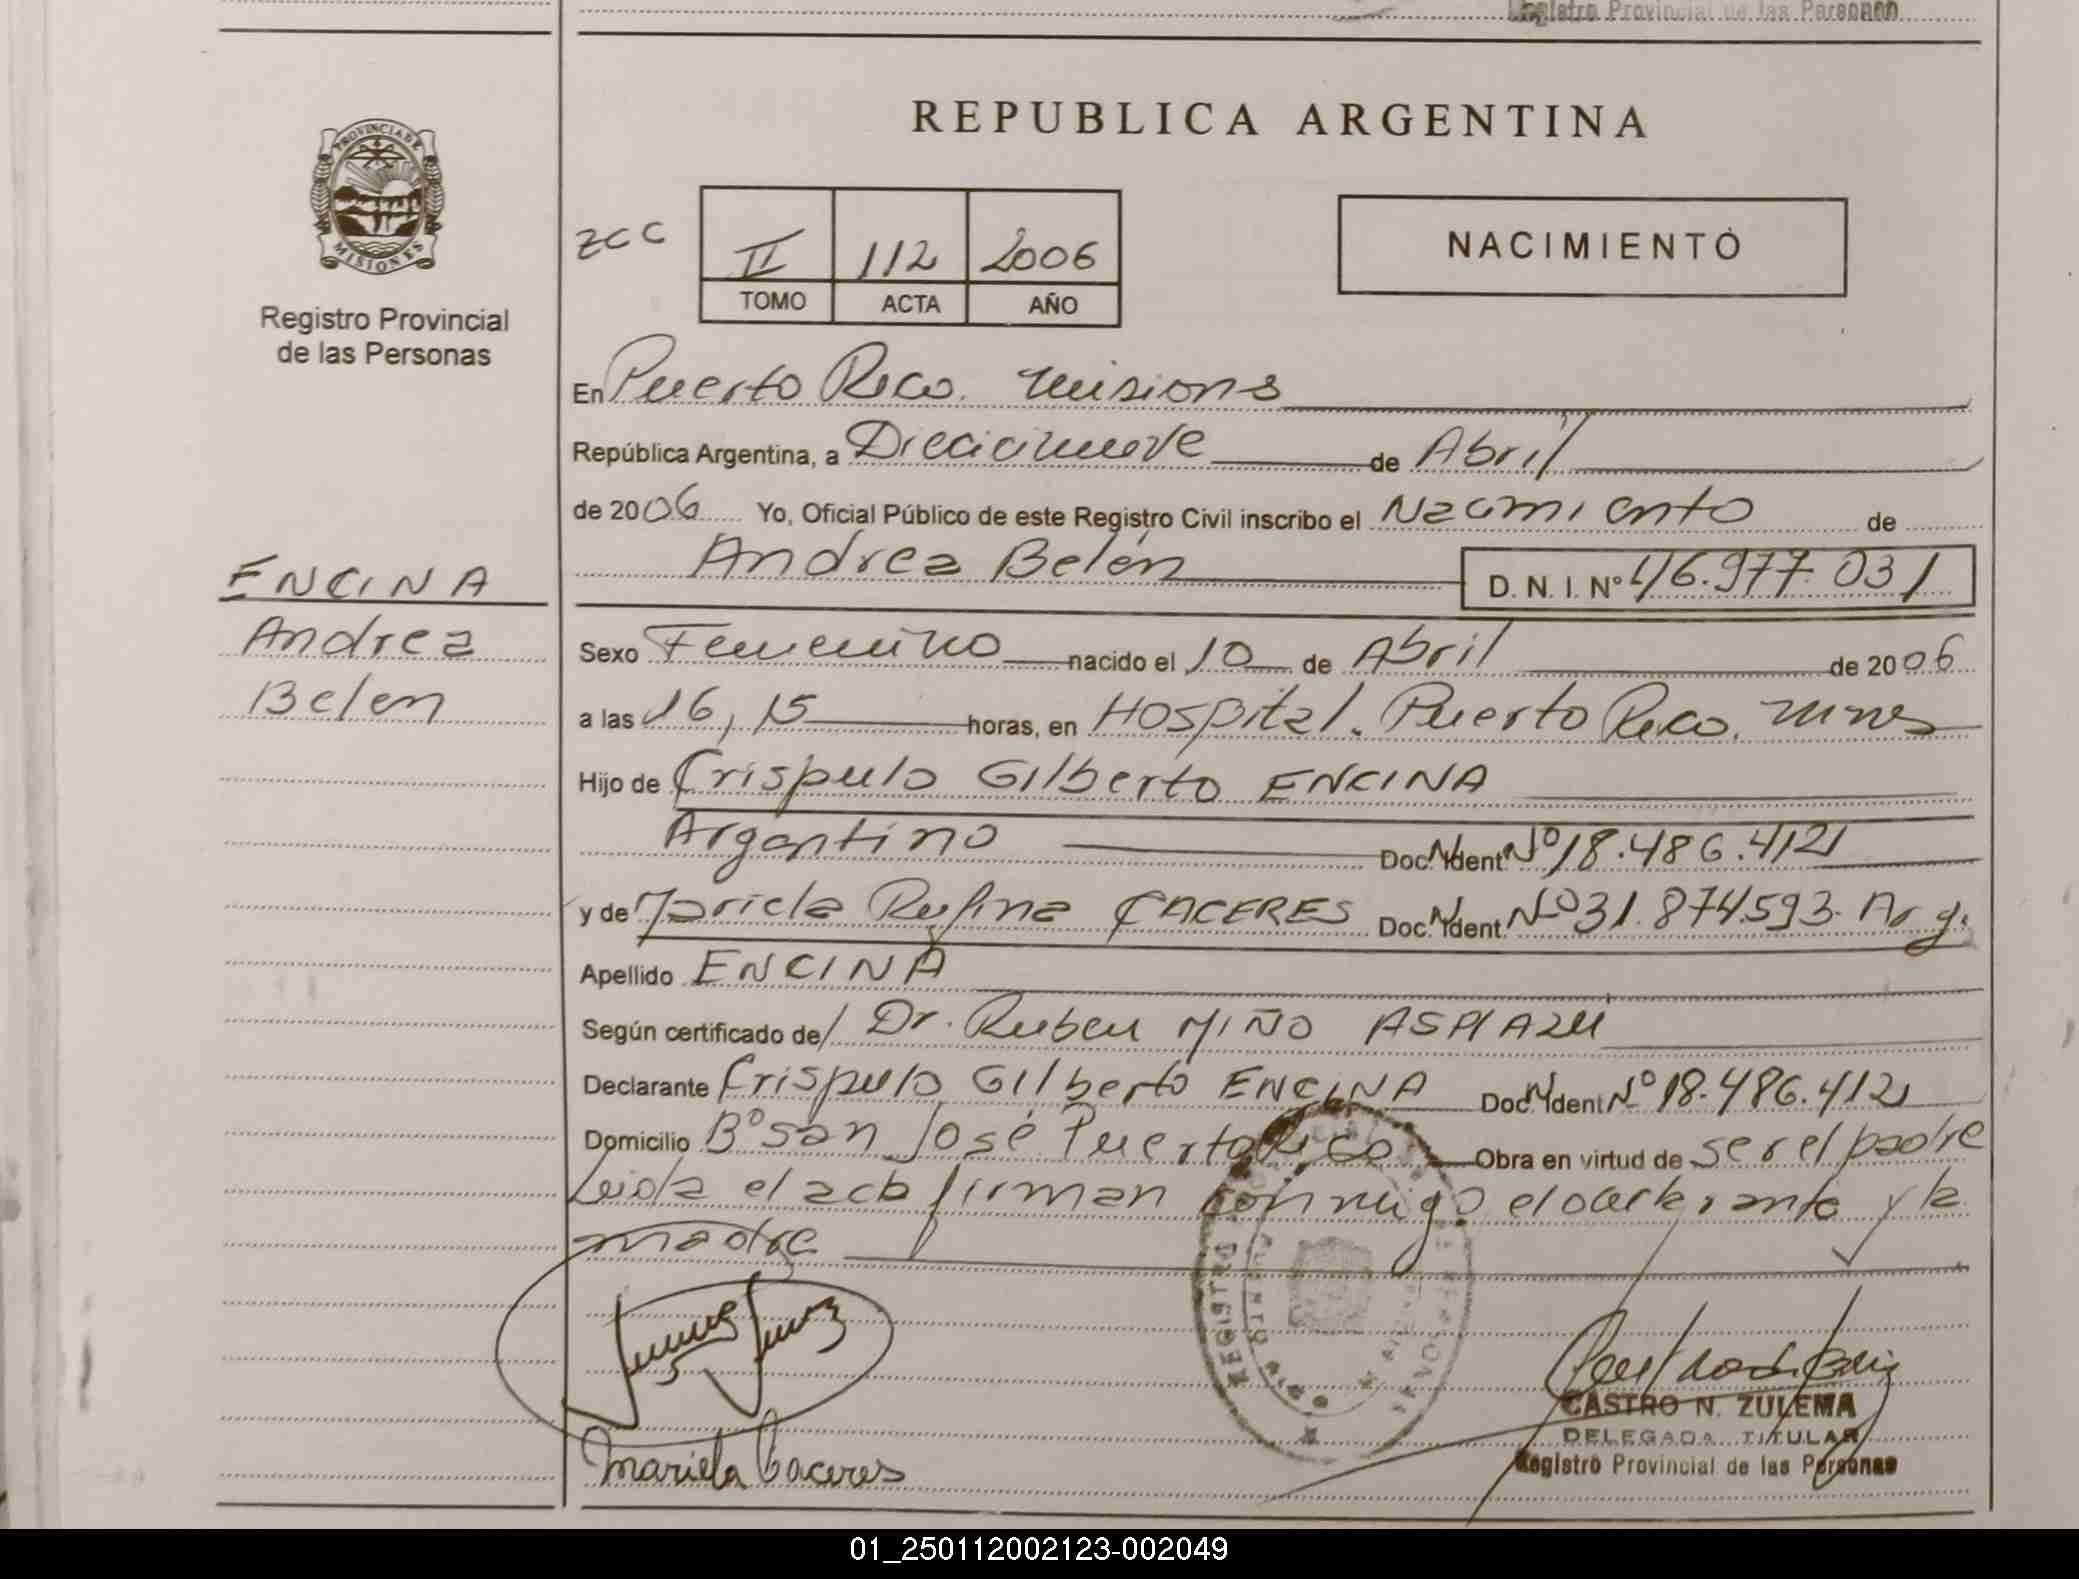 Registro Provincial de las Personas
REPUBLICA ARGENTINA
PROVINCIA DE
MISIONES
Registro Provincial
de las Personas
ZCC
II 112 2006
TOMO ACTA AÑO
NACIMIENTO
En Puerto Rico. Misiones
República Argentina, a Diecinueve de Abril
de 2006 Yo, Oficial Público de este Registro Civil inscribo el Nacimiento de
Andrea Belén D. N. I. Nº 46.977.031
ENCINA
Andrea
Belen
Sexo Femenino nacido el 10 de Abril de 2006
a las 16,15 horas, en Hospital. Puerto Rico. Mnes
Hijo de Crispulo Gilberto ENCINA
Argentino Doc. Ident. Nº 18.486.412
y de Mariela Rufina CACERES Doc. Ident. Nº 31.874.593. Arg.
Apellido ENCINA
Según certificado de/ Dr. Ruben MIÑO ASPIAZU
Declarante Crispulo Gilberto ENCINA Doc. Ident Nº 18.486.412
Domicilio Bº San José Puerto Rico Obra en virtud de ser el padre
Leida el acta firman conmigo el declarante y la
madre
Mariela Caceres
CASTRO N. ZULEMA
DELEGADA TITULAR
Registro Provincial de las Personas
01_250112002123-002049